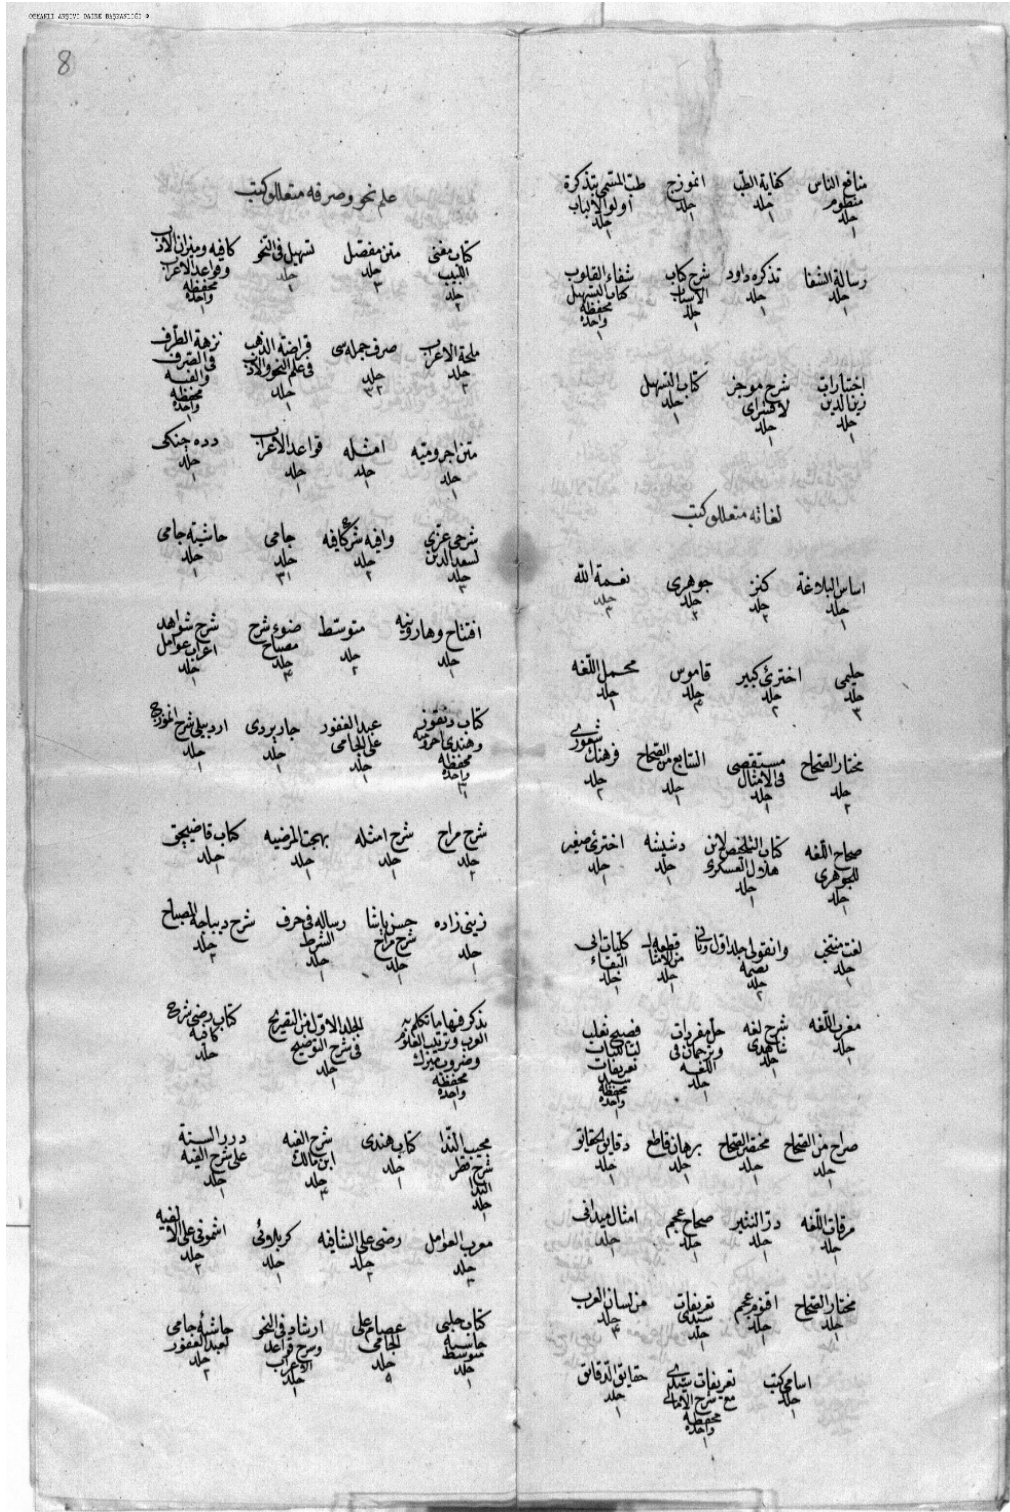 OSMANLI ARŞİVİ DAİRE BAŞKANLIĞI
8
منافع الناس منظوم جلد ١
كفاية الطب جلد ١
انموزج جلد ١
طب المسمى بتذكرة اولو الالباب جلد ١
رسالة الشفا جلد ١
تذكره داود جلد ١
شرح كتاب الاسباب جلد ١
شفاء القلوب كتاب التسهيل محفظه واحده ١
اختيارات زين الدين جلد ١
شرح موجز لاقسرای جلد ١
كتاب التسهيل جلد ١
لغاته متعلق كتب
اساس البلاغة جلد ١
كنز جلد ٢
جوهری جلد ٢
نعمة الله جلد ٣
حليمی جلد ٣
اختری كبير جلد ٢
قاموس جلد ٤
مجمل اللغه جلد ١
مختار الصحاح جلد ٢
مستقصی فی الامثال جلد ١
السابع من الصحاح جلد ١
فرهنك شعوری جلد ٢
صحاح اللغه للجوهری جلد ١
كتاب التلخيص لابن هلال العسكری جلد ١
دشيشه جلد ١
اختری صغير جلد ١
لغت منتخب جلد ١
وانقولی جلد اول وثانی بصمه جلد ٢
قطعة من الامثال جلد ١
كليات ابی البقاء جلد ١
مغرب اللغه جلد ١
شرح لغه شاهدی جلد ١
حل مفردات وترجمان فی اللغه جلد ١
فصيح ثعلب تعريفات سيد محفظه واحده ١
صراح من الصحاح جلد ١
مختصر الصحاح جلد ١
برهان قاطع جلد ١
دقايق الحقايق جلد ١
مرقات اللغه جلد ١
در النثير جلد ١
صحاح عجم جلد ١
امثال ميدانی جلد ١
مختار الصحاح جلد ١
اقنوم عجم جلد ١
تعريفات سيدی جلد ١
من لسان العرب جلد ٣
اسامی كتب جلد ١
تعريفات سيدی مع شرح الامالی محفظه واحده ١
حقايق الدقايق جلد ١
علم نحو وصرفه متعلق كتب
كتاب مغنی اللبيب جلد ٢
متن مفصل جلد ٣
تسهيل فی النحو جلد ١
كافيه وميزان الادب وقواعد الاعراب محفظه واحده ١
ملحة الاعراب جلد ٢
صرف جمله سی جلد ٣٢
قراضة الذهب فی علم النحو والادب جلد ١
نزهة الطرف فی الصرف والفيه محفظه واحده ١
متن اجروميه جلد ١
امثله جلد ١
قواعد الاعراب جلد ١
دده جنكی جلد ١
شرحی عزی لسعد الدين جلد ٣
وافيه شرح كافيه جلد ٢
جامی جلد ٣١
حاشيه جامی جلد ١
افتتاح وهارونيه جلد ١
متوسط جلد ٢
ضوء شرح مصباح جلد ٤
شرح شواهد اعراب عوامل جلد ١
كتاب دنقوز وهندی اجروميه محفظه واحده
عبد الغفور علی الجامی جلد ١
جاربردی جلد ١
اردبيلی شرح انموزج جلد ١
شرح مراح جلد ٢
شرح امثله جلد ١
بهجة المرضيه جلد ١
كتاب قاضيجق جلد ١
زينی زاده جلد ١
حسن پاشا شرح مراح جلد ١
رساله فی حرف الشرط جلد ١
شرح ديباجة المصباح جلد ٢
يذكر فيها ما تكلم به العرب محفظه واحده ١
المجلد الاول من التصريح فی شرح التوضيح جلد ١
كتاب رضی شرح كافيه جلد
مجيب الندا شرح قطر الندا جلد ١
كتاب هندی جلد ١
شرح الفيه ابن مالك جلد ٤
درر السنية علی شرح الفيه جلد ١
معرب العوامل جلد ٣
رضی علی الشافيه جلد ٢
كربلائی جلد ١
اشمونی علی الالفيه جلد ٢
كتاب حلبی حاشيه متوسط جلد ١
عصام علی الجامی جلد ٥
ارشاد فی النحو وشرح قواعد الاعراب جلد ١
حاشيه جامی لعبد الغفور جلد ٢